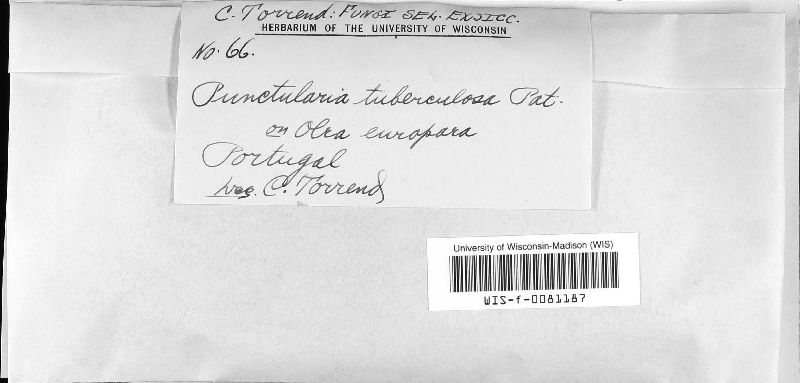 C. Torrend: Fungi Sel. Exsicc.
HERBARIUM OF THE UNIVERSITY OF WISCONSIN
No. 66.
Punctularia tuberculosa Pat.
on Olea europaea
Portugal
Leg. C. Torrend
University of Wisconsin-Madison (WIS)
WIS-f-0081187